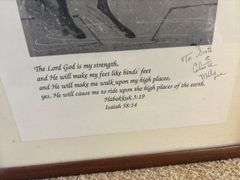 The Lord God is my strength,
and He will make my feet like hinds' feet
and He will make me walk upon my high places,
yes, He will cause me to ride upon the high places of the earth.
Habakkuk 3:19
Isaiah 58:14
To Scott
&